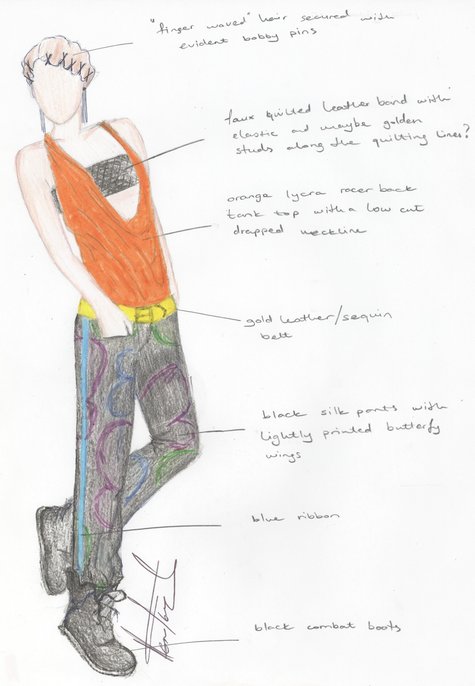 "finger waved" hair secured with
evident bobby pins
faux quilted leather band with
elastic and maybe golden
studs along the quilting lines?
orange lycra racer back
tank top with a low cut
drapped neckline
gold leather/sequin
belt
black silk pants with
lightly printed butterfly
wings
blue ribbon
black combat boots